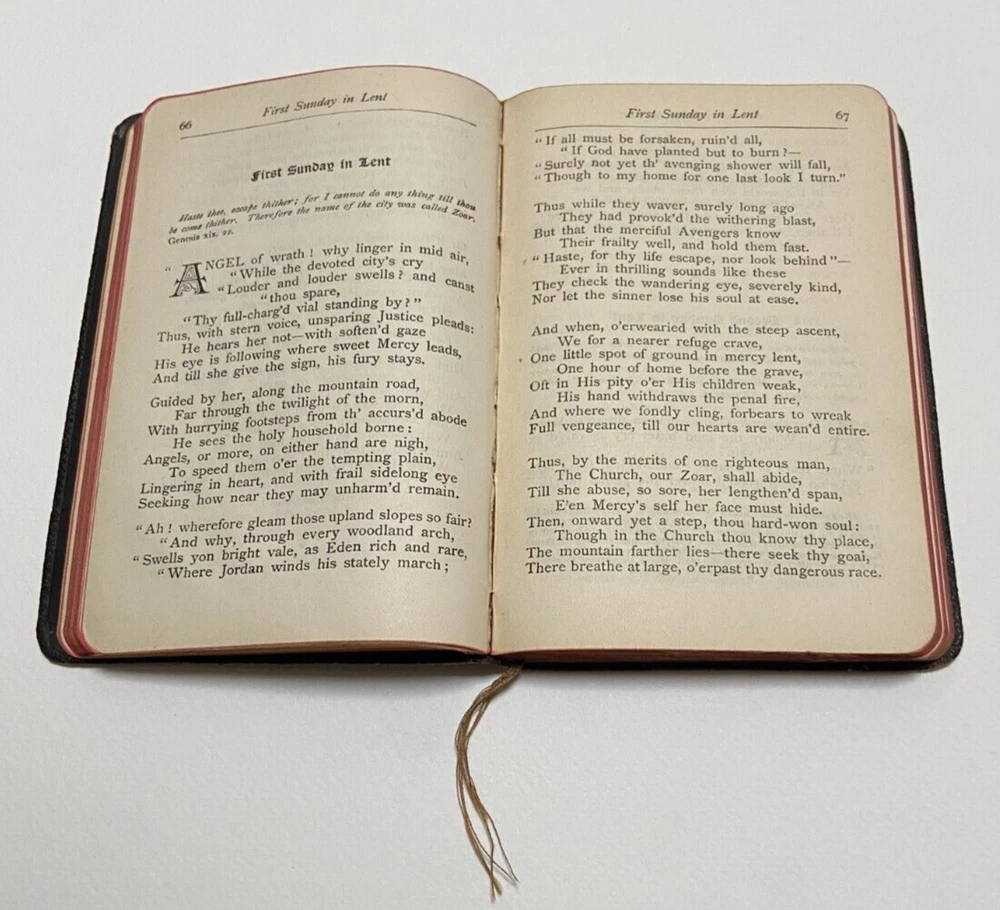 66
First Sunday in Lent
First Sunday in Lent
Haste thee, escape thither; for I cannot do any thing till thou
be come thither. Therefore the name of the city was called Zoar.
Genesis xix. 22.
“ ANGEL of wrath ! why linger in mid air,
“While the devoted city's cry
“Louder and louder swells ? and canst
“thou spare,
“Thy full-charg'd vial standing by ? ”
Thus, with stern voice, unsparing Justice pleads:
He hears her not—with soften'd gaze
His eye is following where sweet Mercy leads,
And till she give the sign, his fury stays.
Guided by her, along the mountain road,
Far through the twilight of the morn,
With hurrying footsteps from th' accurs'd abode
He sees the holy household borne :
Angels, or more, on either hand are nigh,
To speed them o'er the tempting plain,
Lingering in heart, and with frail sidelong eye
Seeking how near they may unharm'd remain.
“Ah ! wherefore gleam those upland slopes so fair?
“And why, through every woodland arch,
“Swells yon bright vale, as Eden rich and rare,
“Where Jordan winds his stately march ;
First Sunday in Lent
67
“If all must be forsaken, ruin'd all,
“If God have planted but to burn ?—
“Surely not yet th' avenging shower will fall,
“Though to my home for one last look I turn.”
Thus while they waver, surely long ago
They had provok'd the withering blast,
But that the merciful Avengers know
Their frailty well, and hold them fast.
“Haste, for thy life escape, nor look behind”—
Ever in thrilling sounds like these
They check the wandering eye, severely kind,
Nor let the sinner lose his soul at ease.
And when, o'erwearied with the steep ascent,
We for a nearer refuge crave,
One little spot of ground in mercy lent,
One hour of home before the grave,
Oft in His pity o'er His children weak,
His hand withdraws the penal fire,
And where we fondly cling, forbears to wreak
Full vengeance, till our hearts are wean'd entire.
Thus, by the merits of one righteous man,
The Church, our Zoar, shall abide,
Till she abuse, so sore, her lengthen'd span,
E'en Mercy's self her face must hide.
Then, onward yet a step, thou hard-won soul :
Though in the Church thou know thy place,
The mountain farther lies—there seek thy goal,
There breathe at large, o'erpast thy dangerous race.